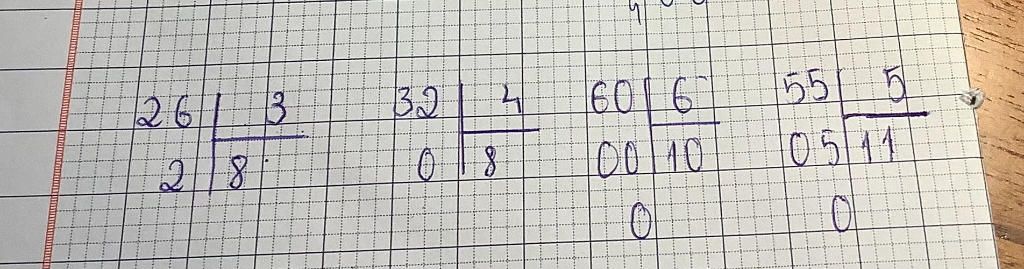 26 | 3
2 | 8
32 | 4
0 | 8
60 | 6
00 | 10
0
55 | 5
05 | 11
0